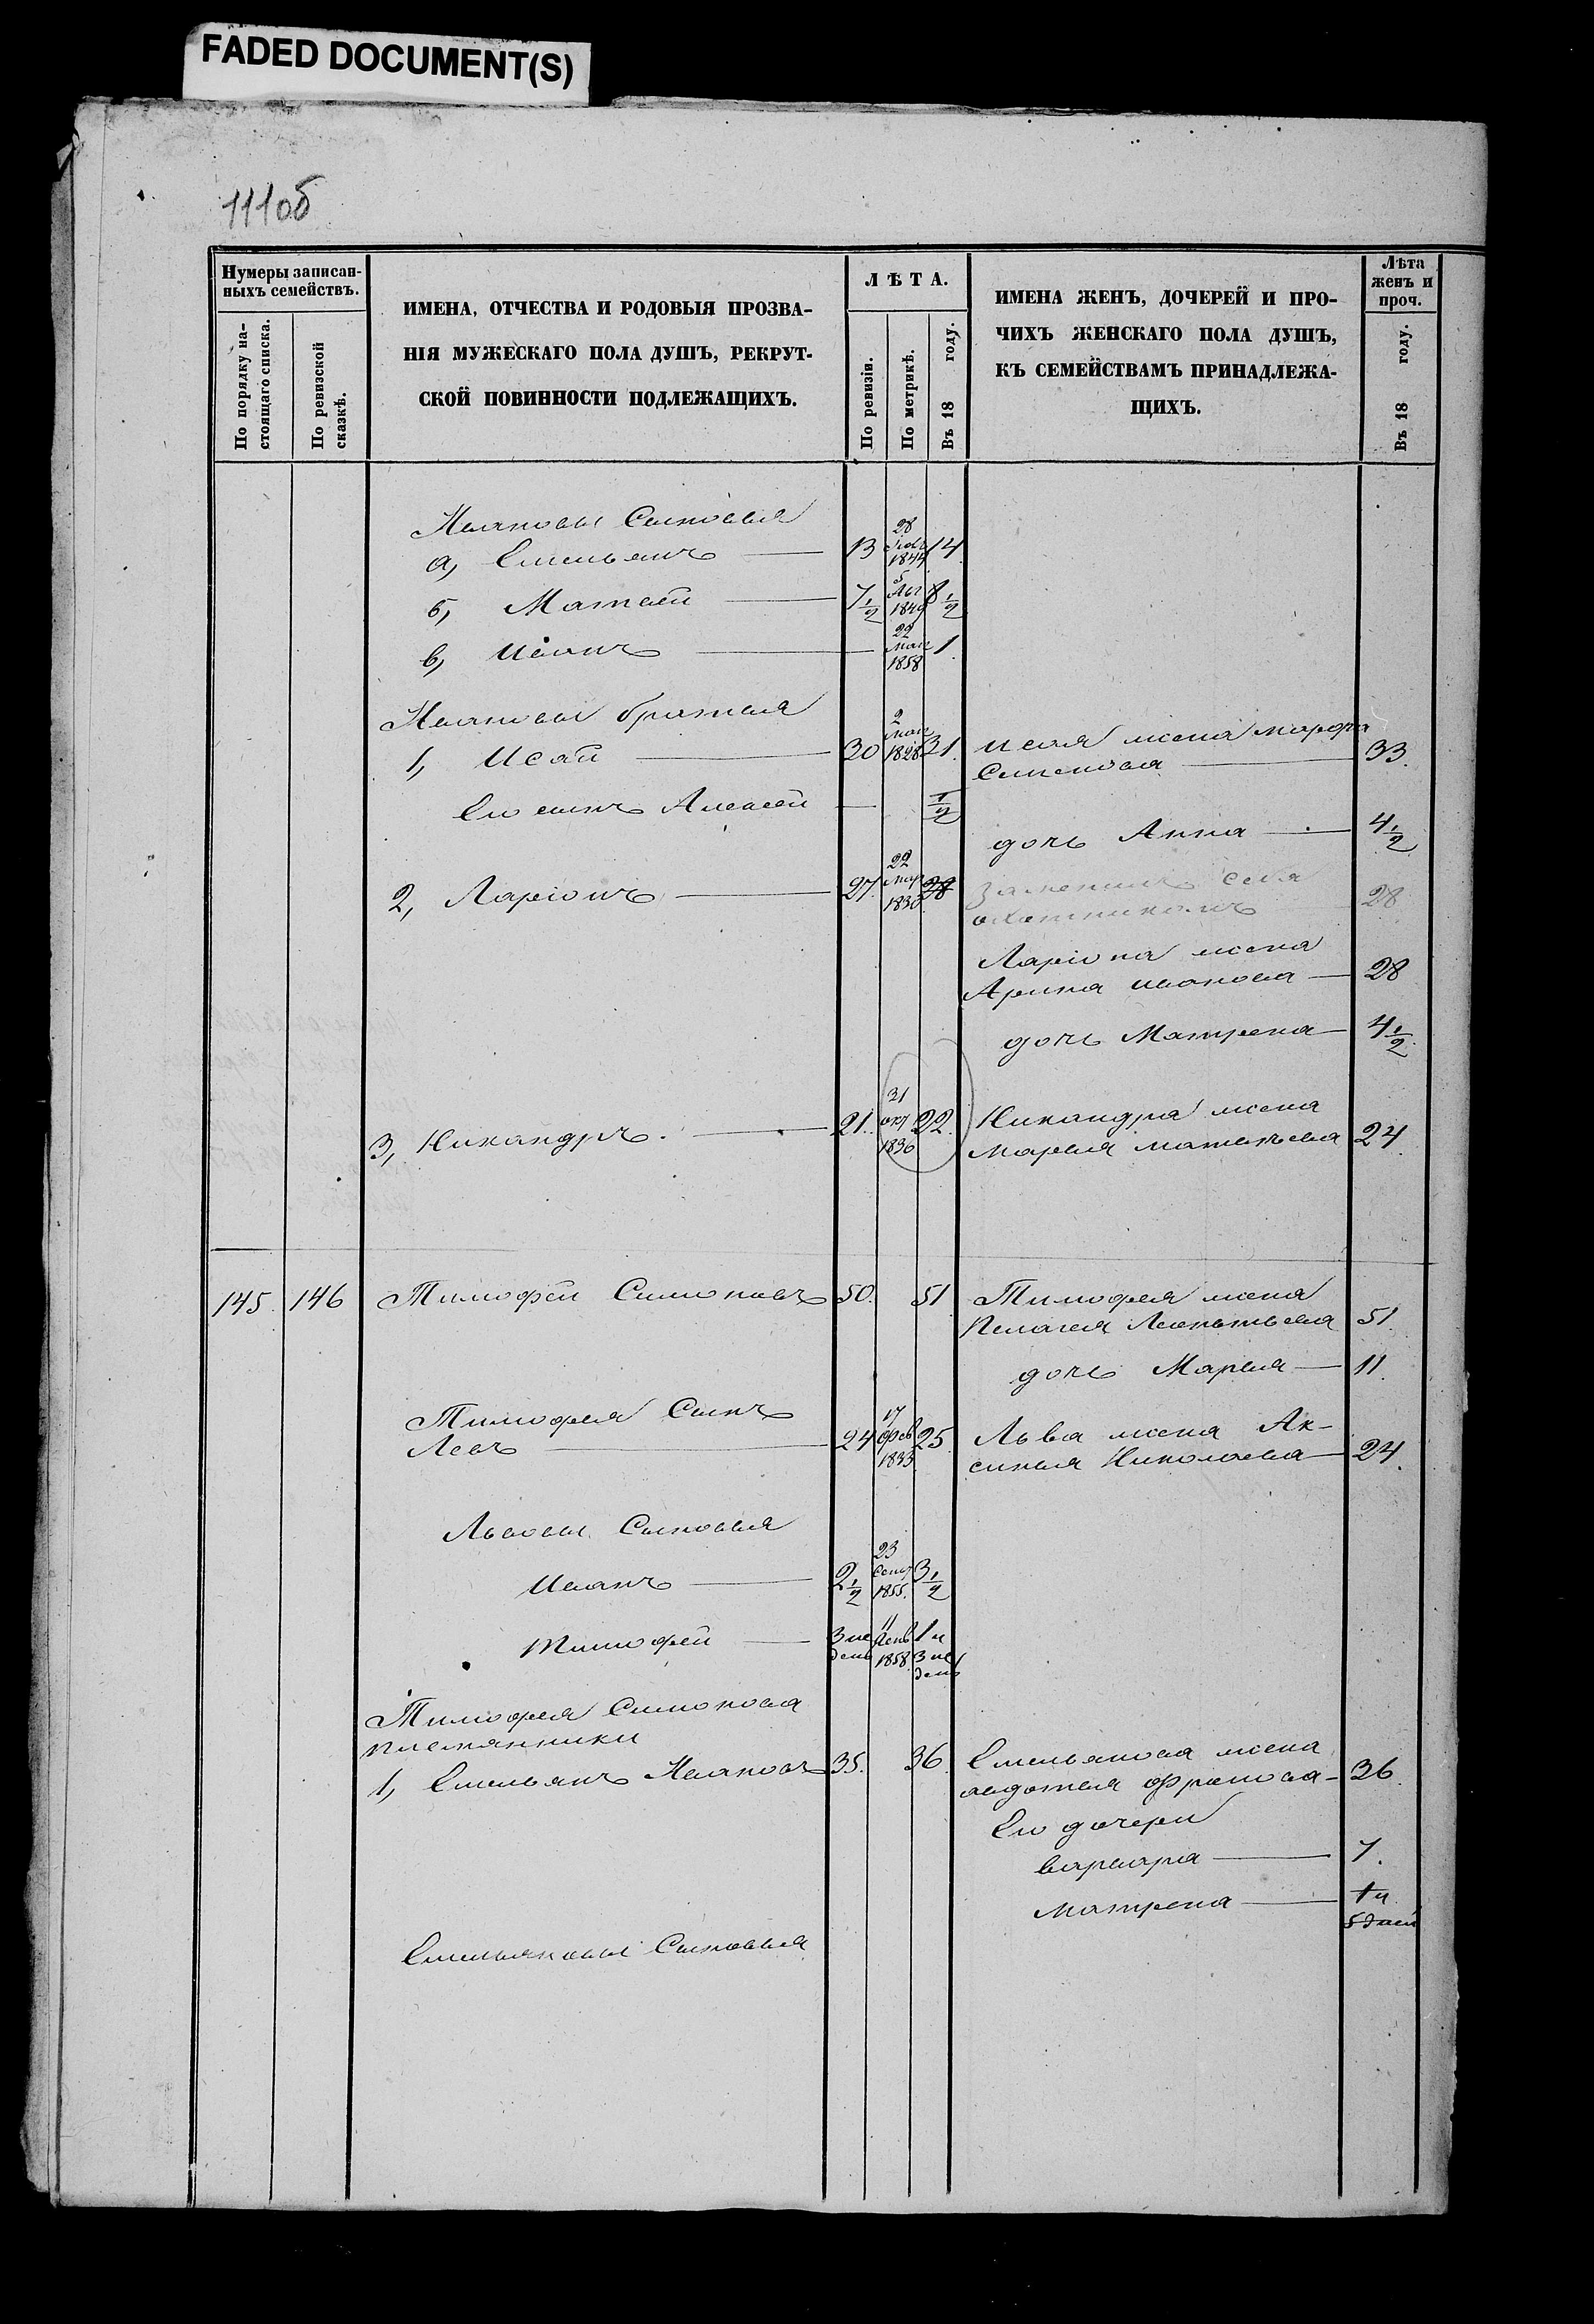 FADED DOCUMENT(S)
111об
Нумеры записан-
ныхъ семействъ.
По порядку на-
стоящаго списка.
По ревизской
сказкѣ.
ИМЕНА, ОТЧЕСТВА И РОДОВЫЯ ПРОЗВА-
НІЯ МУЖЕСКАГО ПОЛА ДУШЪ, РЕКРУТ-
СКОЙ ПОВИННОСТИ ПОДЛЕЖАЩИХЪ.
ЛѢТА.
По ревизіи.
По метрикѣ.
Въ 18 году.
ИМЕНА ЖЕНЪ, ДОЧЕРЕЙ И ПРО-
ЧИХЪ ЖЕНСКАГО ПОЛА ДУШЪ,
КЪ СЕМЕЙСТВАМЪ ПРИНАДЛЕЖА-
ЩИХЪ.
Лѣта
женъ и
проч.
Въ 18 году.
Ивановы Сыновья
а, Емельянъ 13 28 1844 14
б, Матвей 7 1/2 5 Авг 1849 8 1/2
в, Иванъ 22 мая 1858 1
Ивановы братья
1, Исай 30 2 мая 1828 31. Исая жена марфа
Семенова 33.
Его сынъ Алексей 1/2
дочь Анна 4 1/2
2, Ларіонъ 27. 22 мар 1830 28 Заменилъ себя
охотникомъ 28
Ларіона жена
Арина иванова 28
дочь Матрена 4 1/2
3, Никандръ. 21. 31 окт 1836 22. Никандра жена
марья матвѣева 24
145. 146 Тимофей Симоновъ 50. 51 Тимофея жена
Пелагея Леонтьева 51.
дочь Марья 11.
Тимофея Сынъ
Левъ 24 17 фев 1833 25. Льва жена Ак-
синья Николаева 24.
Львовы Сыновья
Иванъ 2 1/2 23 Сент 1855. 3 1/2
Тимофей 3 не дель 11 Генв 1858 1 и 3 не дель
Тимофея Симонова
племянники
1, Емельянъ Ивановъ 35. 36. Емельянова жена
авдотья фролова 36.
Его дочери
варвара 7.
матрена 1 и 5 дней
Емельяновы Сыновья